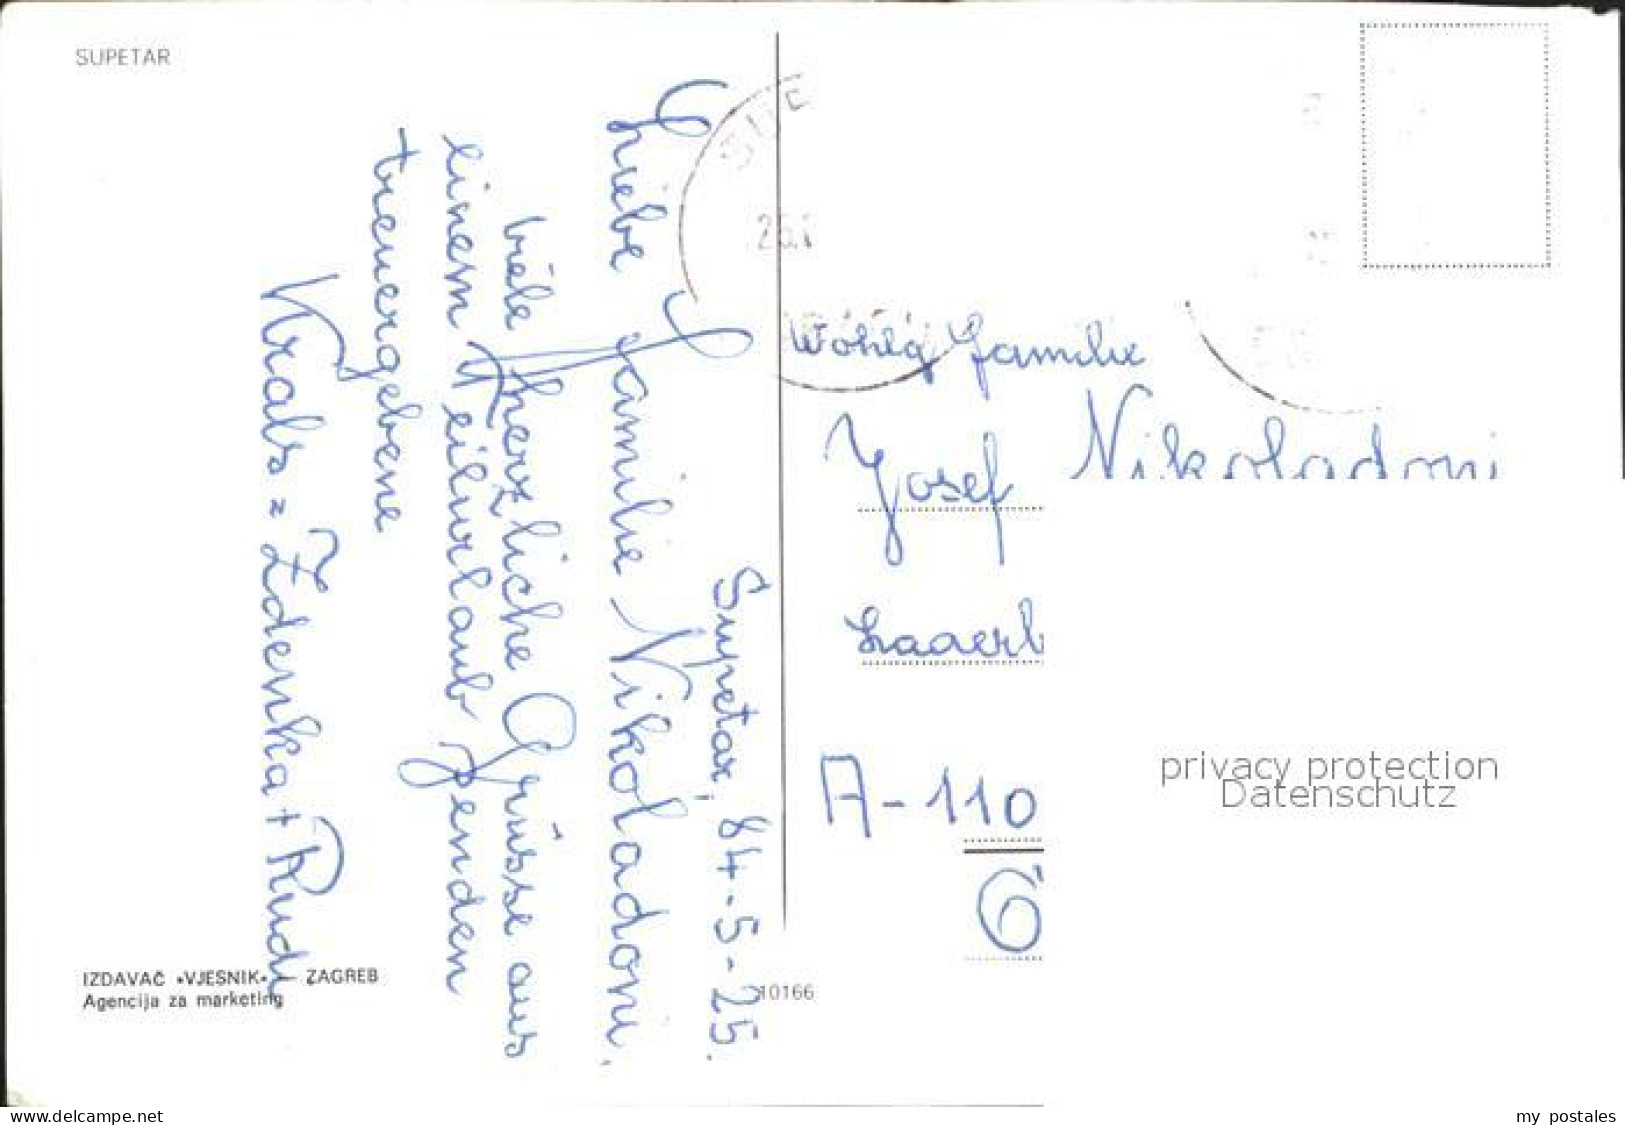 SUPETAR
Supetar, 84-5-25.
Liebe Familie Nikoladoni,
viele herzliche Grüsse aus
einem Heilurlaub senden
treuergebene
Krals = Zdenka + Rudi
IZDAVAČ «VJESNIK» — ZAGREB
Agencija za marketing
10166
25.
Familie
Josef Nikoladoni
Laaerb
A-110
6
privacy protection
Datenschutz
www.delcampe.net
my postales